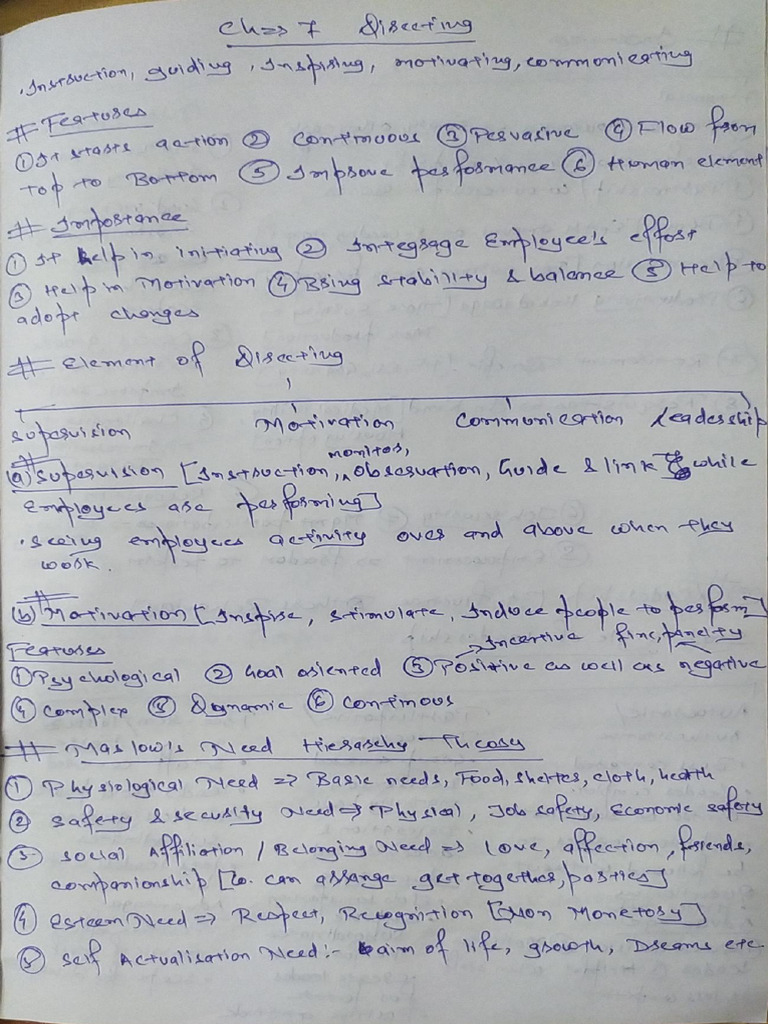 Ch => 7 Directing
. Instruction, guiding, Inspiring, motivating, communicating
# Features
① It starts action ② Continuous ③ Pervasive ④ Flow from
top to Bottom ⑤ Improve performance ⑥ Human element
# Importance
① It help in initiating ② Integrage Employee's effort
③ Help in Motivation ④ Bring stability & balance ⑤ Help to
adopt changes
# Element of Directing
Supervision Motivation Communication Leadership
monitor,
(a) Supervision [Instruction, ^ Observation, Guide & link while
Employees are performing]
. Seeing employees activity over and above when they
work.
(b) Motivation [Inspire, stimulate, Induce people to perform]
Features → Incentive fine, panelty
① Psychological ② Goal oriented ③ Positive as well as negative
④ Complex ⑤ Dynamic ⑥ Continous
# Maslow's Need Hierarchy Theory
① Physiological Need => Basic needs, Food, shelter, cloth, health
② Safety & security Need => Physical, Job safety, Economic safety
③ Social Affiliation / Belonging Need => Love, affection, friends,
companionship [Co. can arrange get together, parties]
④ Esteem Need => Respect, Recognition [Non Monetory]
⑤ Self Actualisation Need:- aim of life, growth, Dreams etc